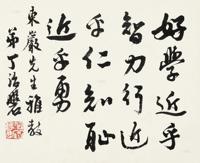 好學近乎
智力行近
乎仁知耻
近乎勇
東巖先生雅教
弟丁治磐